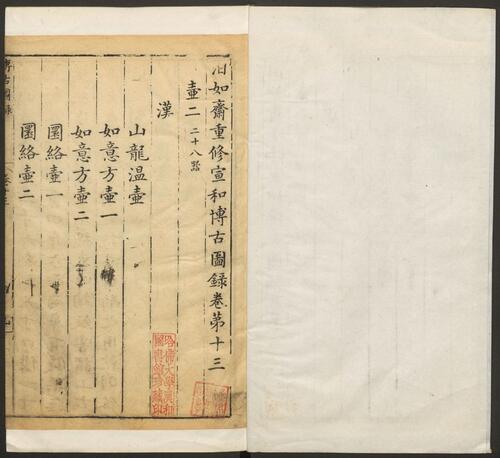 泊如齋重修宣和博古圖錄卷第十三
壺二 二十八器
漢
山龍温壺
如意方壺一
如意方壺二
圂絡壺一
圂絡壺二
博古圖錄
哈佛大學漢和
圖書館珍藏印